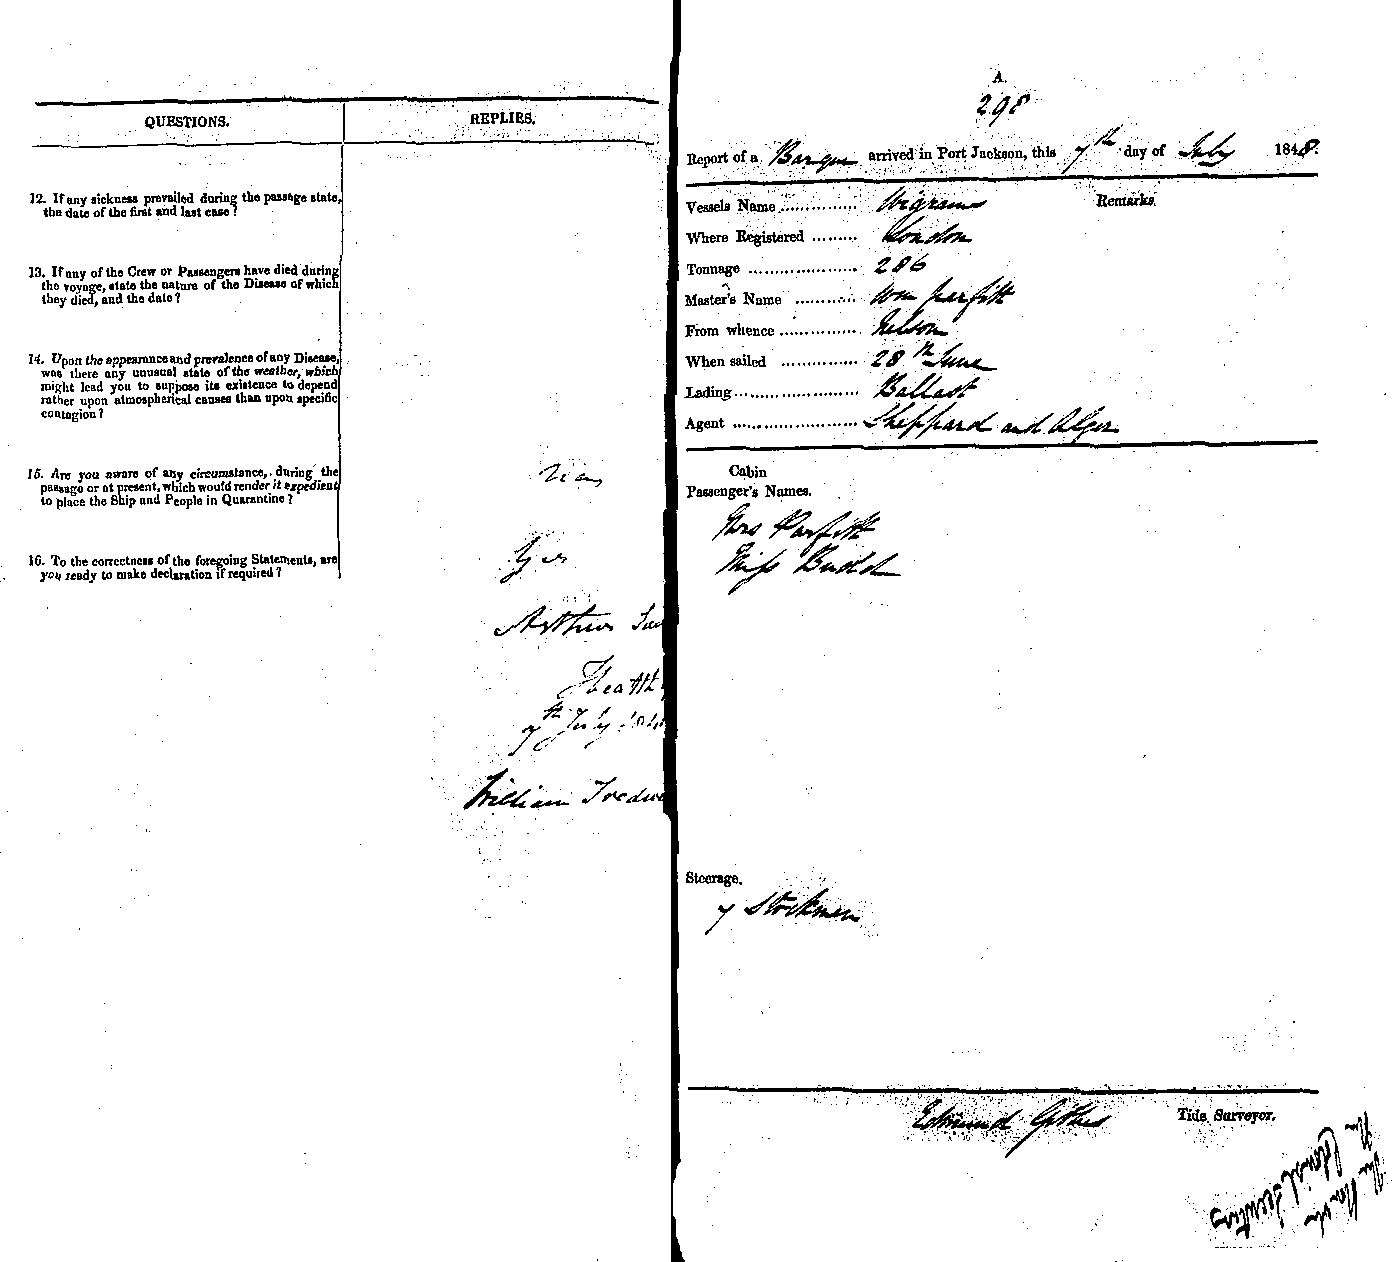 QUESTIONS. REPLIES.
12. If any sickness prevailed during the passage state,
the date of the first and last case?
13. If any of the Crew or Passengers have died during
the voyage, state the nature of the Disease of which
they died, and the date?
14. Upon the appearance and prevalence of any Disease,
was there any unusual state of the weather, which
might lead you to suppose its existence to depend
rather upon atmospherical causes than upon specific
contagion?
15. Are you aware of any circumstance, during the
passage or at present, which would render it expedient
to place the Ship and People in Quarantine?
16. To the correctness of the foregoing Statements, are
you ready to make declaration if required?
Yes
Arthur
7th July
William
A.
298
Report of a Barque arrived in Port Jackson, this 7th day of July 1848.
Remarks.
Vessels Name ............... Wigrams
Where Registered ......... London
Tonnage ..................... 286
Master's Name ............ Wm Parfitt
From whence ............... Nelson
When sailed ............... 28th June
Lading ........................ Ballast
Agent ........................ Sheppard and Alger
Cabin
Passenger's Names.
Mrs Parfitt
Miss Budd
Steerage.
7 Stockmen
Edmund Tide Surveyor.
The Colonial Secretary